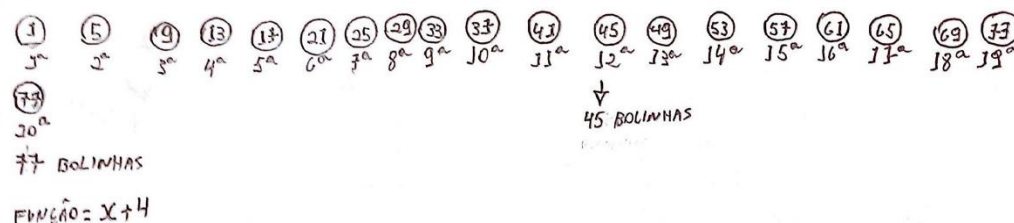 1 5 9 13 17 21 25 29 33 37 41 45 49 53 57 61 65 69 73
1ª 2ª 3ª 4ª 5ª 6ª 7ª 8ª 9ª 10ª 11ª 12ª 13ª 14ª 15ª 16ª 17ª 18ª 19ª
77
20ª
45 BOLINHAS
77 BOLINHAS
FUNÇÃO = X+4